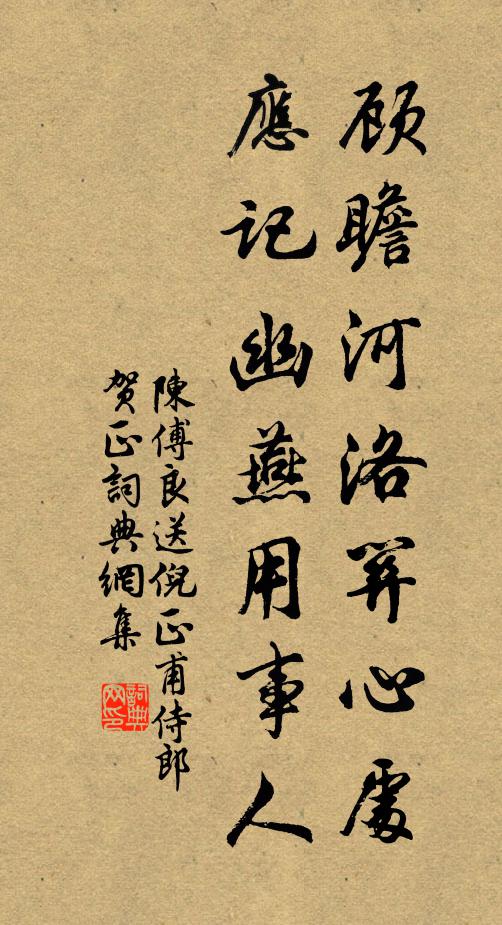 顾瞻河洛關心處
應记幽燕用事人
陳傅良送倪正甫侍郎
贺正詞典網集
詞典网印